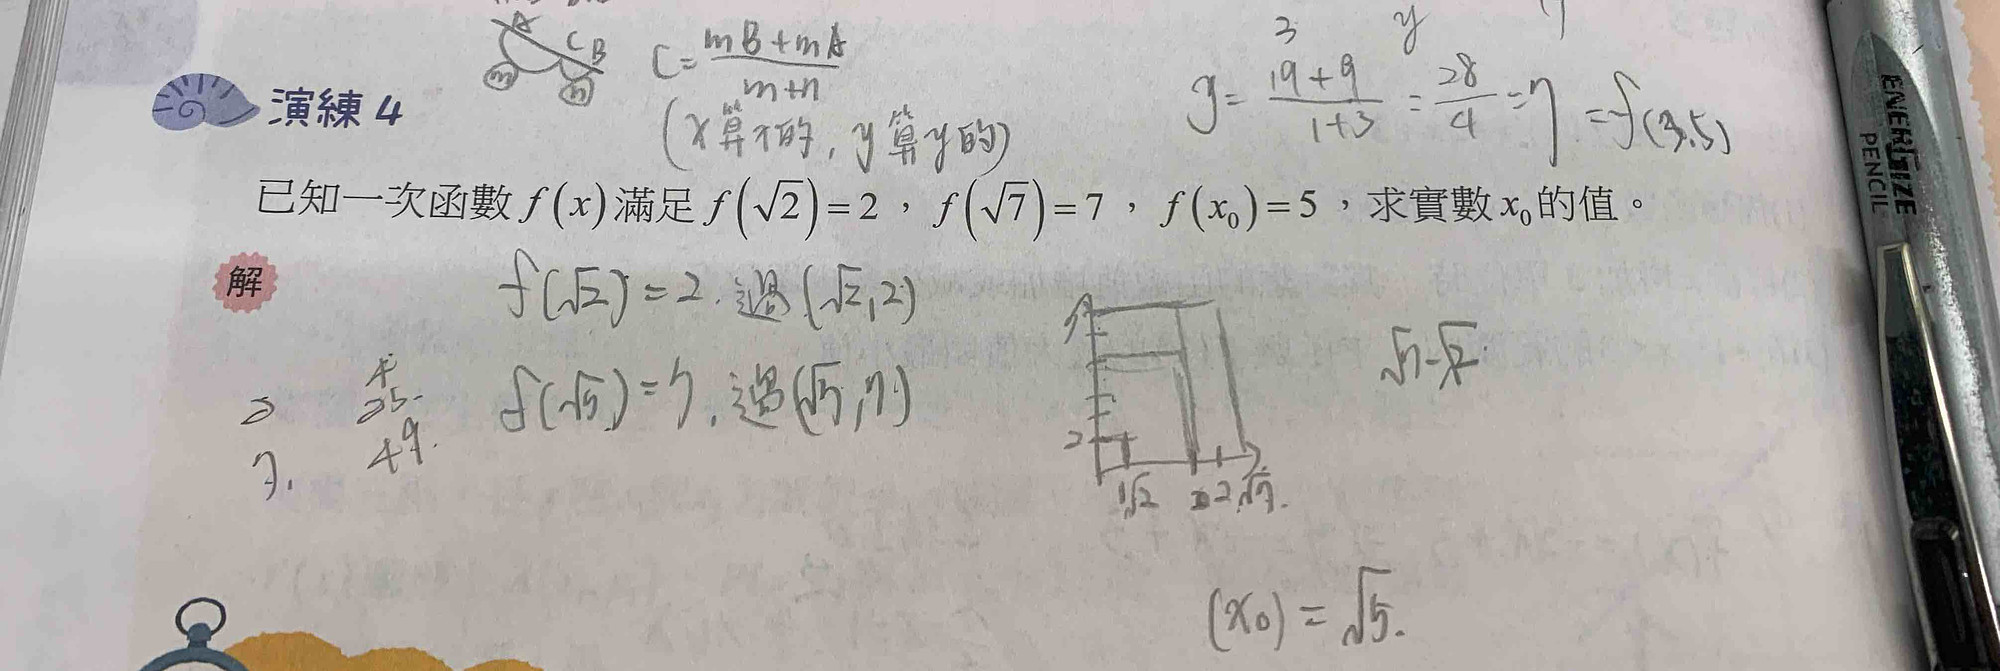 A C B
m n
C = \frac{mB+mA}{m+n}
(x算x的, y算y的)
3 y
y = \frac{19+9}{1+3} = \frac{28}{4} = 7 = f(3.5)
演練 4
已知一次函數 f(x) 滿足 f(√2) = 2，f(√7) = 7，f(x₀) = 5，求實數 x₀ 的值。
解
f(√2) = 2. 過(√2, 2)
f(√7) = 7. 過(√7, 7)
4
2 25.
7. 49.
7
2
1 √2 2 √7.
√7-√2
(x₀) = √5.
ENERGIZE
PENCIL